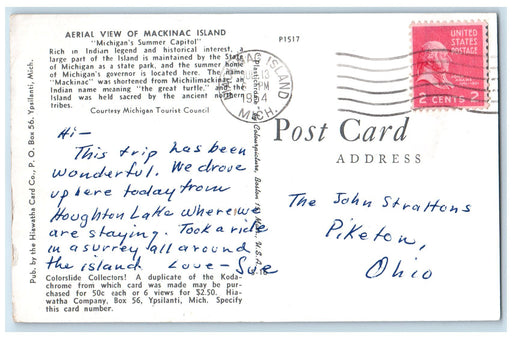 AERIAL VIEW OF MACKINAC ISLAND
"Michigan's Summer Capitol"
Rich in Indian legend and historical interest, a
large part of the Island is maintained by the State
of Michigan as a state park, and the summer home
of Michigan's governor is located here. The name
"Mackinac" was shortened from Michilimackinac, an
Indian name meaning "the great turtle," and the
Island was held sacred by the ancient northern
tribes.
Courtesy Michigan Tourist Council
P1517
Pub. by the Hiawatha Card Co., P. O. Box 56, Ypsilanti, Mich.
Hi—
This trip has been
wonderful. We drove
up here today from
Houghton Lake where we
are staying. Took a ride
in a surrey all around
the island Love— Sue
Colorslide Collectors! A duplicate of the Koda-
chrome from which card was made may be pur-
chased for 50c each or 6 views for $2.50. Hia-
watha Company, Box 56, Ypsilanti, Mich. Specify
this card number.
ISLAND
PM
1954
MICH.
UNITED
STATES
POSTAGE
2 CENTS 2
Post Card
ADDRESS
The John Strattons
Piketon,
Ohio